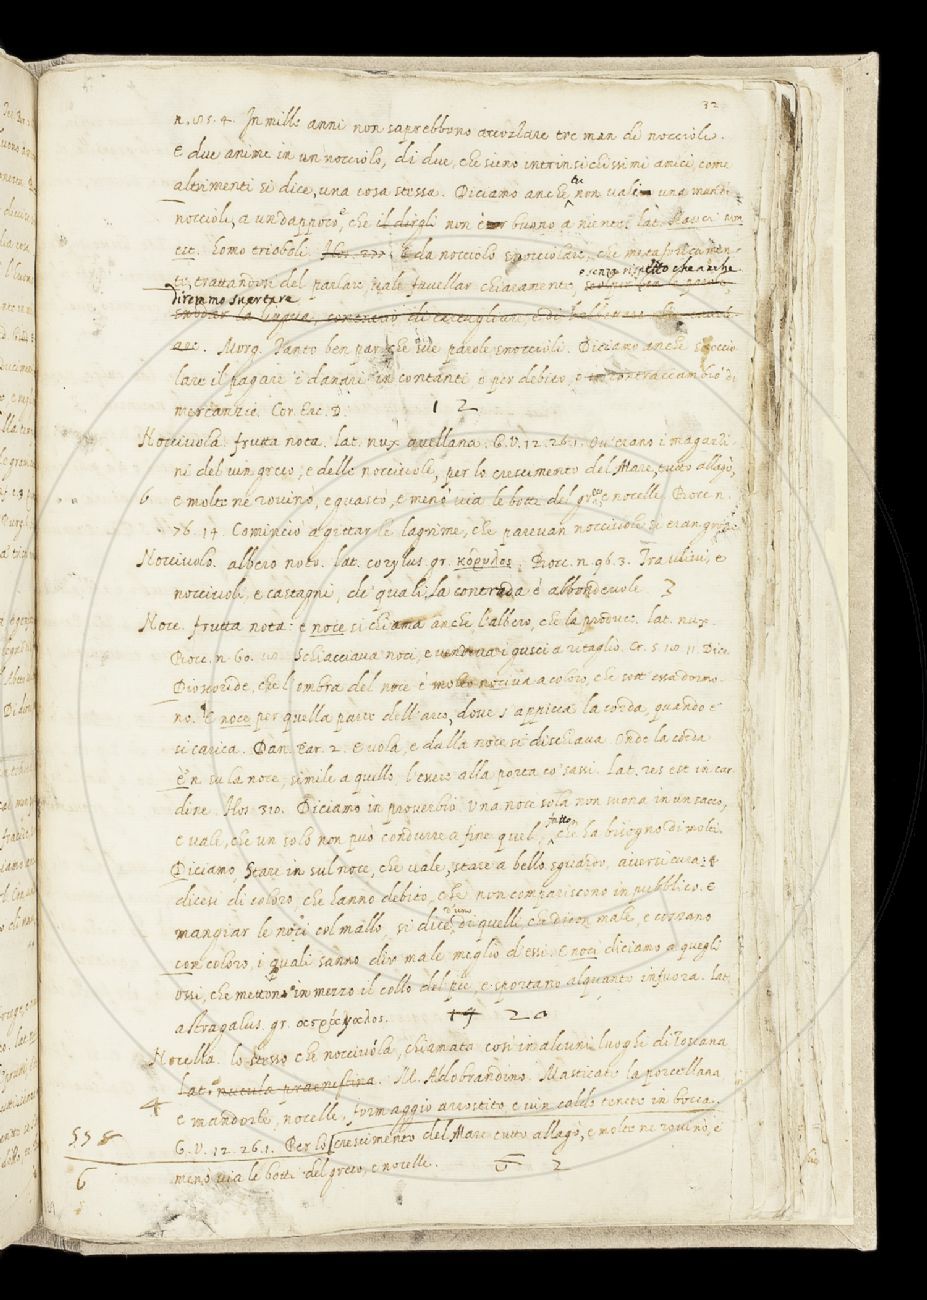 32
n. 85. 4. In mille anni non saprebbono accozzare tre man di noccioli.
E due anime in un nocciolo, di due, che sieno intrinsichissimi amici, come
altrimenti si dice, una cosa stessa. Diciamo anche, tu non vali una man di
noccioli, a un dappoco, che il dirgli non è buono a niente. lat. Pauci non
etc. homo trioboli. E da nocciolo snocciolare, che metaforicamen-
te, trattandosi del parlare, vale favellar chiaramente, e senza rispetto che anche
diremmo svertare
snodar la lingua, contrario di cincigliare, e di
are. Morg. Tanto ben par, che sue parole snoccioli. Diciamo anche snoccio
lare il pagare i danari in contanti o per debito, o in contraccambio di
mercanzie. Cor. Enc. D. 1 2
Nocciuola. frutta nota. lat. nux avellana. G. V. 12. 26. 1. Ov' erano i magazzi-
ni del vin greco, e delle nocciuole, per lo crescimento del Mare, tutto allagò,
6 e molte ne rovinò, e guastò, e menò via le botti del greco, e nocelle. Bocc. n.
76. 14. Cominciò a gittar le lagrime, che parevan nocciuole sì eran grosse
Nocciuolo. albero noto. lat. corylus. gr. κόρυλος. Bocc. n. 96. 3. Tra ulivi, e
nocciuoli, e castagni, de' quali, la contrada è abbondevole. 3
Noce. frutta nota: e noce si chiama anche l'albero, che la produce. lat. nux.
Bocc. n. 60. 10. Schiacciava noci, e vendeva i gusci a ritaglio. Cr. 5. 10. 11. Dice
Dioscoride, che l'ombra del noce è molto nociva a coloro, che sott' essa dormo-
no. E noce per quella parte dell'arco, dove s'appicca la corda, quando e'
si carica. Dan. Par. 2. E vola, e dalla noce si dischiava. Onde la corda
è 'n su la noce, simile a quello: l'avere alla porta co' sassi. lat. res est in car
dine. Flos 310. Diciamo in proverbio. Una noce sola non suona in un sacco,
e vale, che un solo non può condurre a fine quel fatto, che ha bisogno di molti.
Diciamo, Stare in sul noce, che vale, stare a bello sguardo, avervi cura: e
dicesi di coloro, che hanno debito, che non compariscono in pubblico. E
mangiar le noci col mallo, si dice d'uno, di quelli, che dicon male, e cozzano
con coloro, i quali sanno dir male meglio d'essi. E noci diciamo a quegli
ossi, che metton' in mezzo il collo del piè, e sportano alquanto infuora. lat.
astragalus. gr. ἀστράγαλος. 19 20
Nocella. lo stesso che nocciuola, chiamata così in alcuni luoghi di Toscana
lat. nucula praenestina. M. Aldobrandino. Masticate la porcellana
4 e mandorle, nocelle, formaggio arrostito, e vin caldo tenete in bocca.
558 G. V. 12. 26. 1. Per lo crescimento del Mare tutto allagò, e molte ne rovinò, e
6 menò via le botti del greco, e nocelle. 2